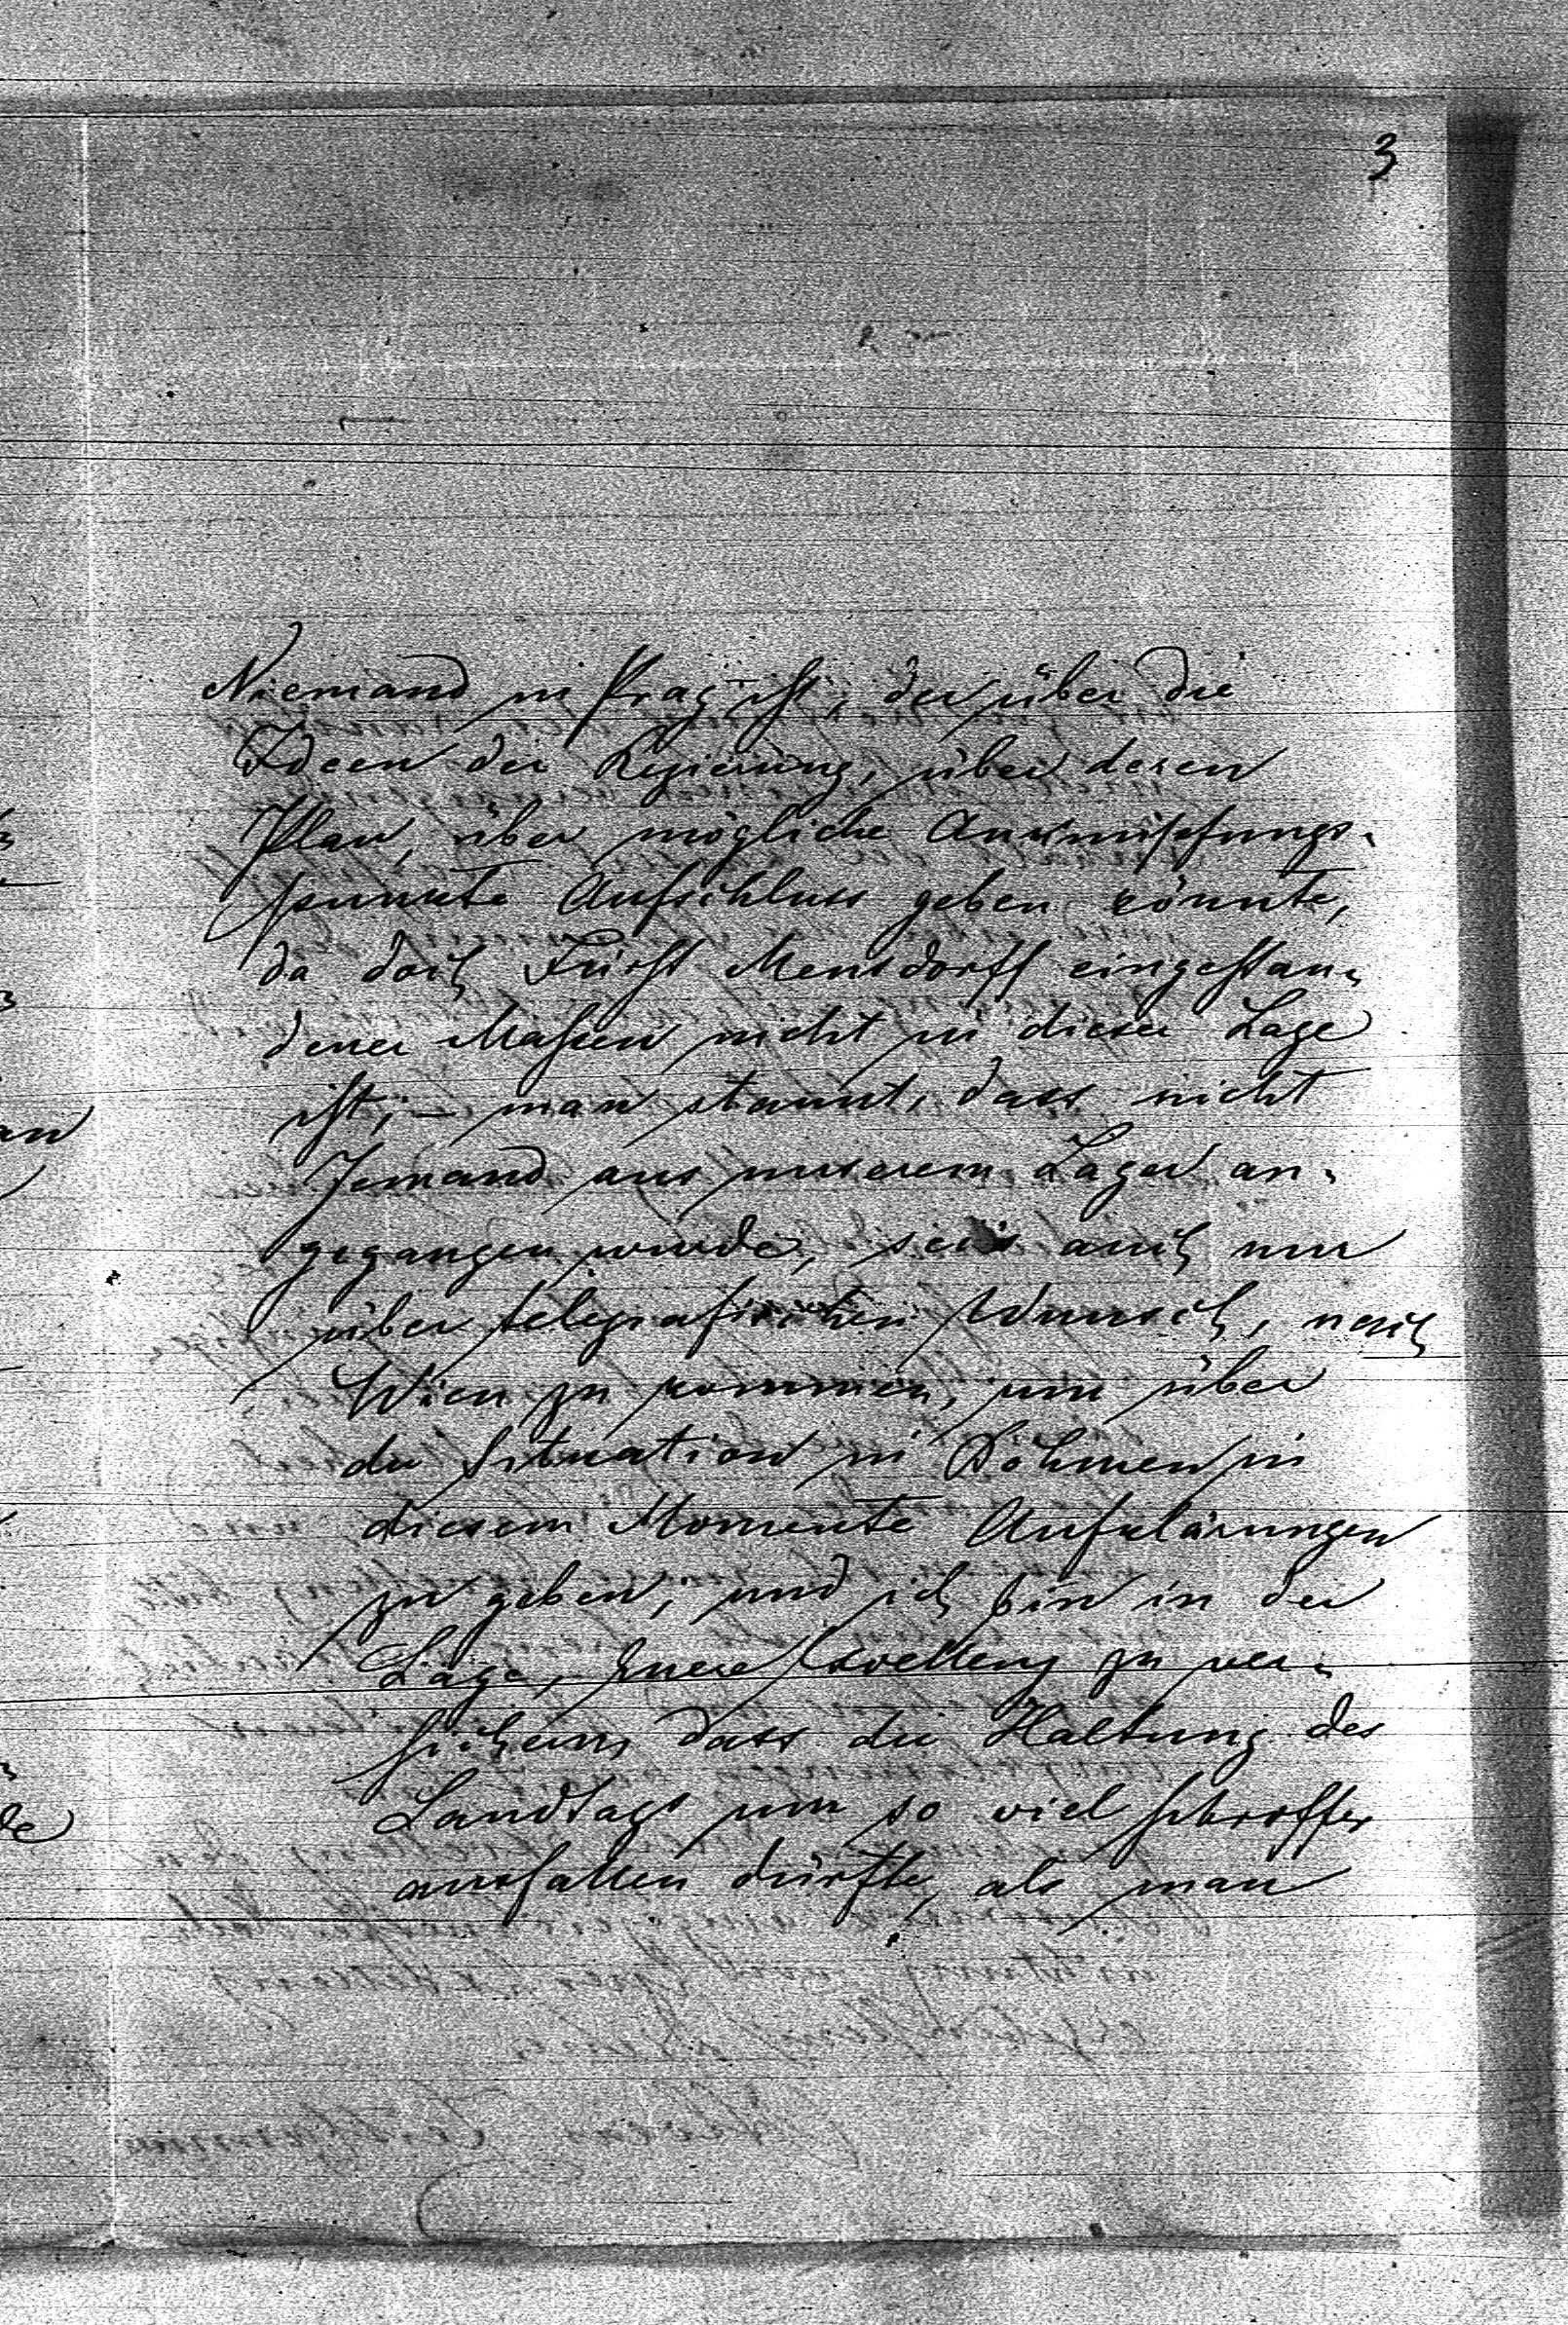 3
Niemand in Prag ist, der über die
Ideen der Regierung, über deren
Plan, über mögliche Anknüpfungs-
punkte Aufschluss geben könnte,
da doch Fürst Mensdorff eingestan-
dener Maßen nicht in dieser Lage
ist; – man staunt, dass nicht
Jemand aus unserem Lager an-
gegangen wurde, seis auch nur
über telegrafischen Wunsch, nach
Wien zu kommen, um über
die Situation in Böhmen in
diesem Momente Aufklärungen
zu geben; und ich bin in der
Lage, Euere Exzellenz zu ver-
sichern, dass die Haltung des
Landtags um so viel schroffer
ausfallen dürfte, als man